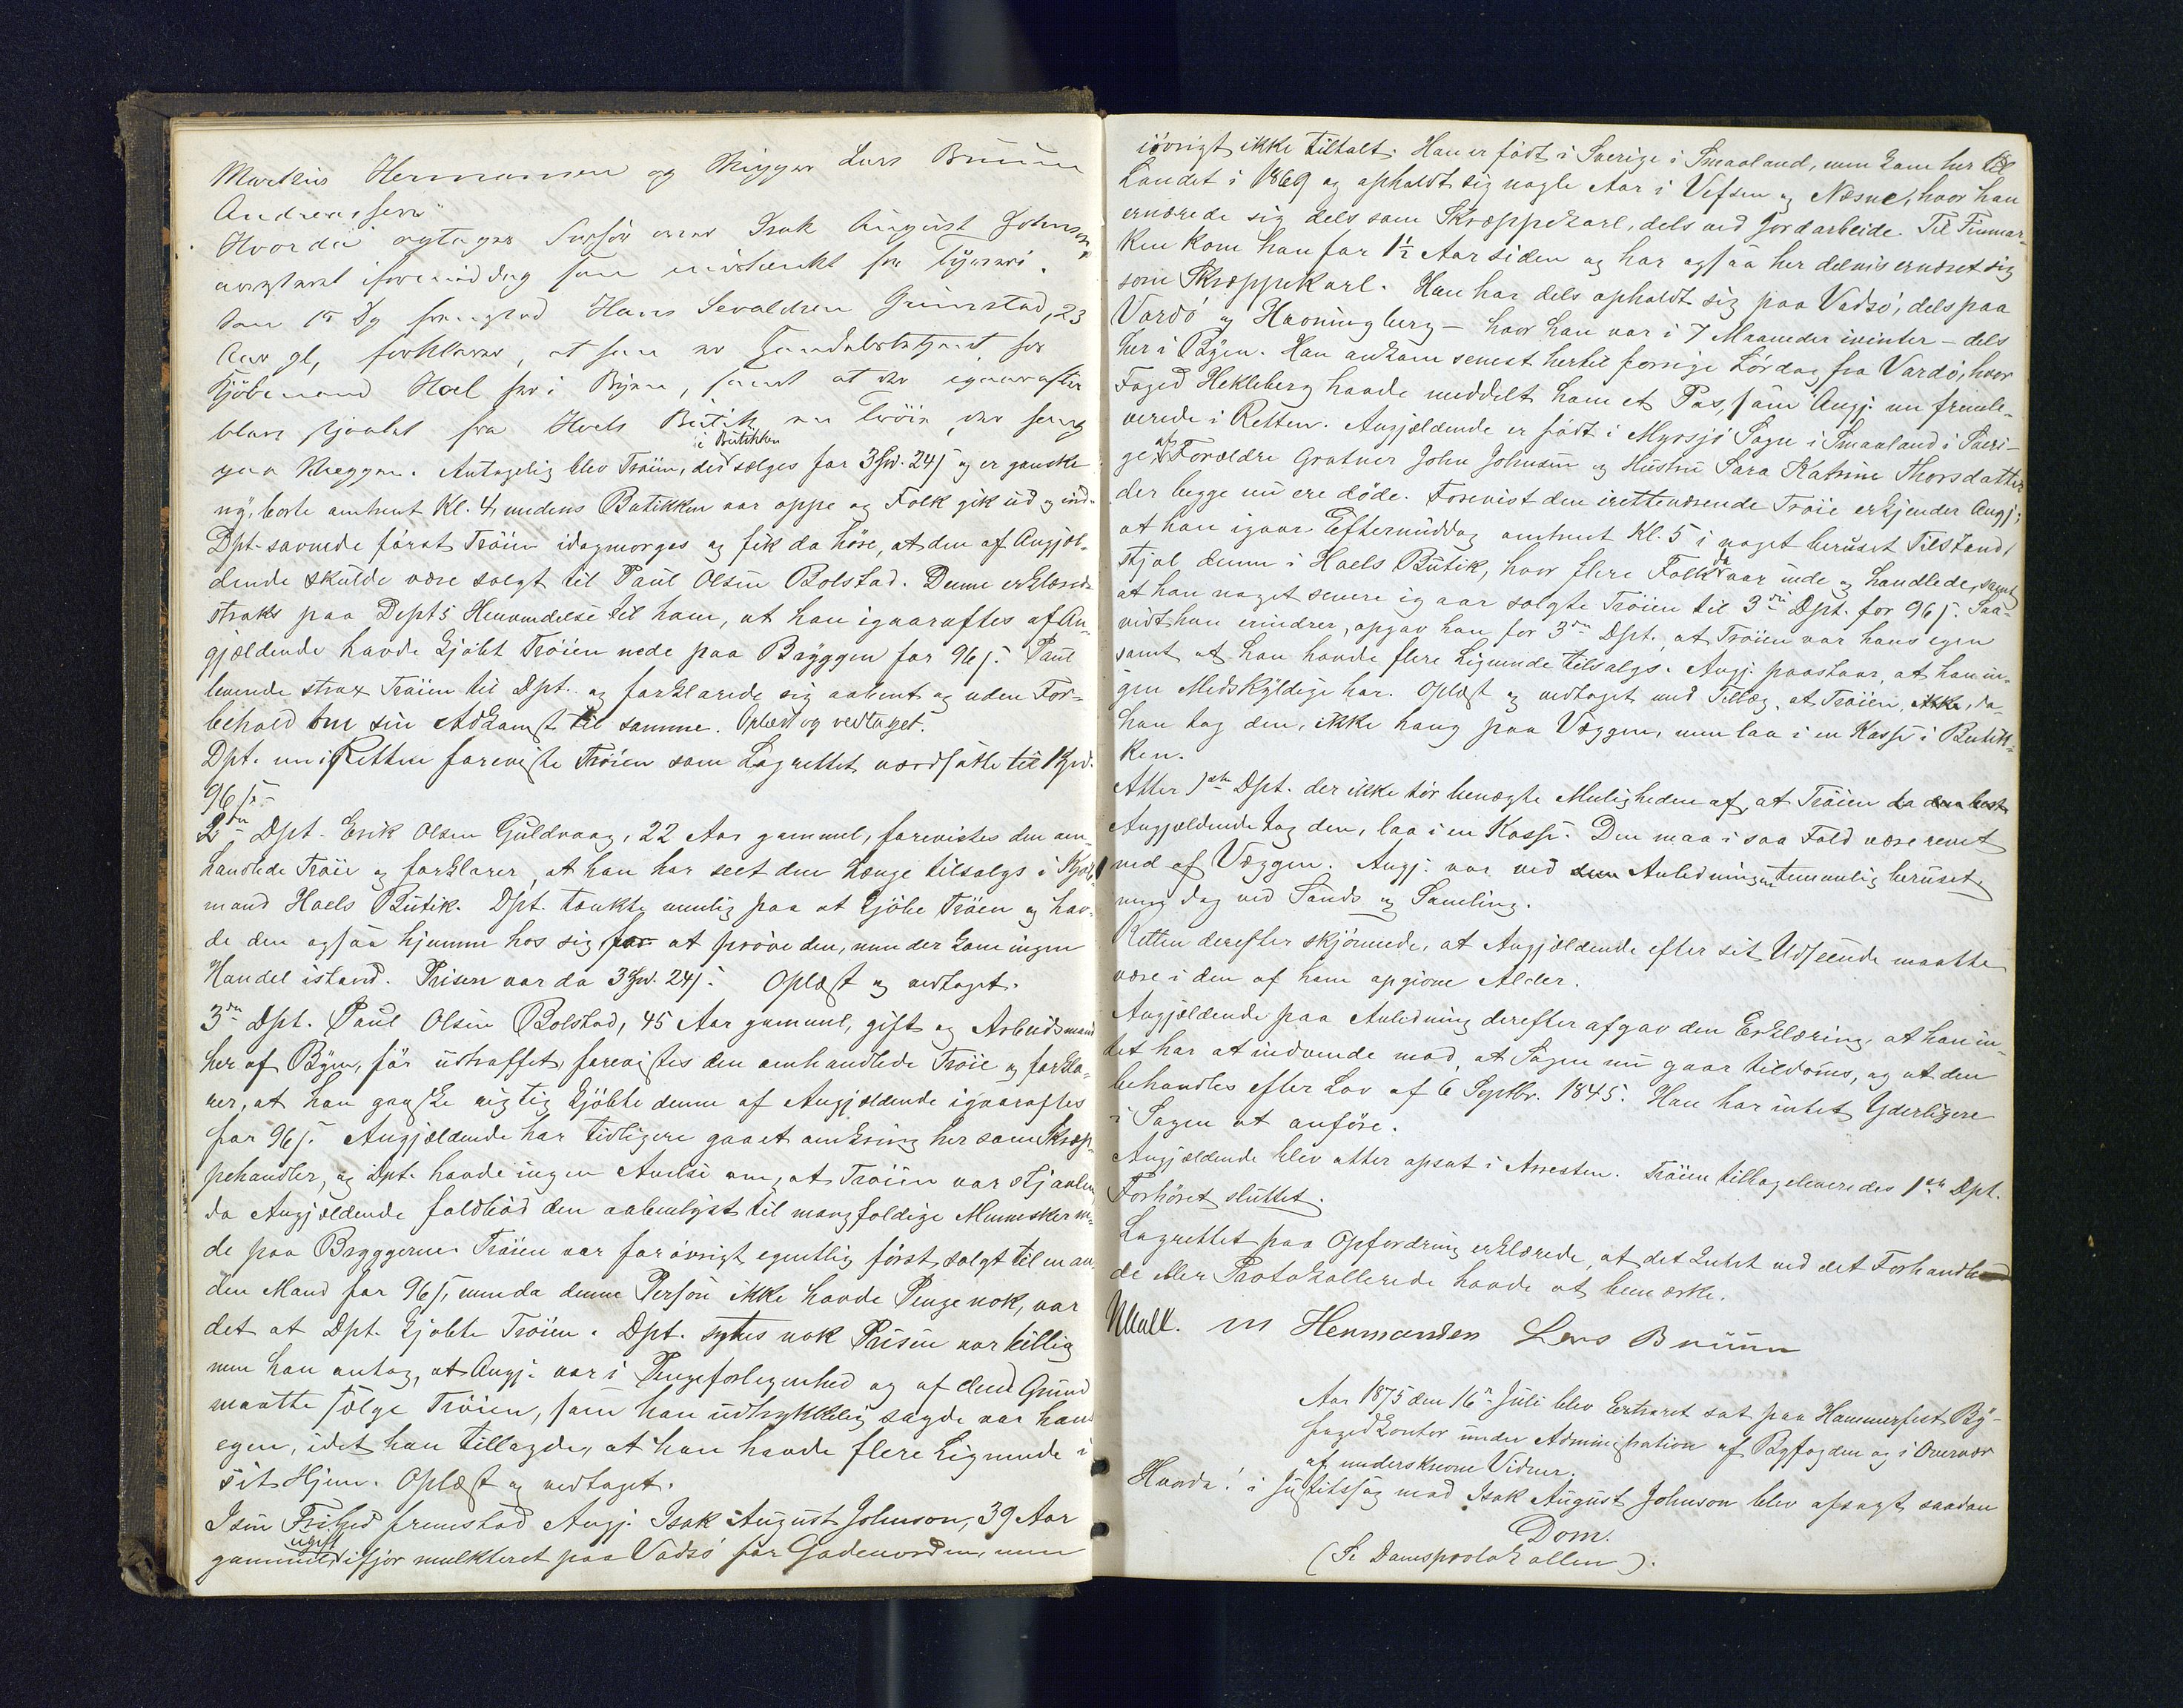 Markus Hermansen og Skipper Lars Bruun
Andreassen
Hvorda optages Forhør over Isak August Johnson
arresteret iformiddag som mistænkt for Tyveri.
Som 1ste Dp fremstod Hans Sevaldsen Grimstad, 23
Aar gl, forklarer, at han er Handelsbetjent for
Kjøbmand Hoel her i Byen, samt at der igaaraftes
blev stjaalet fra Hoels Butik en Trøie, der hang
i Butikken
paa Væggen. Antagelig blev Trøien, der sælges for 3 Spd. 24 s og er ganske
ny, borte omtrent Kl. 4, medens Butikken var oppe og Folk gik ud og ind.
Dpt. savnede først Trøien idagmorges og fik da høre, at den af Angjæl-
dende skulde være solgt til Paul Olsen Bolstad. Denne erklærede
straks paa Depts Henvendelse til ham, at han igaaraftes af An-
gjældende havde kjøbt Trøien nede paa Bryggen for 96 s. Paul
leverede strax Trøien til Dpt. og forklarede sig aabent og uden For-
behold om sin Adkomst til samme. Oplæst og vedtaget.
Dpt. nu i Retten foreviste Trøien som Lagrettet værdsatte til 1 Spd.
96 s.
2den Dpt. Erik Olsen Guldvaag, 22 Aar gammel, forevistes den om-
handlede Trøie og forklarer, at han har seet den hænge tilsalgs i Kjøb-
mand Hoels Butik. Dpt. tænkte nemlig paa at kjøbe Trøien og hav-
de den ogsaa hjemme hos sig for at prøve den, men der kom ingen
Handel istand. Prisen var da 3 Spd. 24 s. Oplæst og vedtaget.
3die Dpt. Paul Olsen Bolstad, 45 Aar gammel, gift og Arbeidsmand
her af Byen, før ustraffet, forevistes den omhandlede Trøie og forkla-
rer, at han ganske rigtig kjøbte denne af Angjældende igaaraftes
for 96 s. Angjældende har tidligere gaaet omkring her som Skræp-
pehandler, og Dpt. havde ingen Anelse om, at Trøien var stjaalen
da Angjældende faldbød den aabenlyst til mangfoldige Mennesker ne-
de paa Bryggerne. Trøien var forøvrigt egentlig først solgt til en an-
den Mand for 96 s, men da denne Person ikke havde Penge nok, var
det at Dpt. kjøbte Trøien. Dpt. syntes nok Prisen var billig
men han antog, at Angj. var i Pengeforlegenhed og af den Grund
maatte sælge Trøien, som han udtrykkelig sagde var hans
egen, idet han tillagde, at han havde flere Lignende i
sit Hjem. Oplæst og vedtaget.
I sin Frihed fremstod Angj. Isak August Johnson, 39 Aar
ugift
gammel, ifjor mulkteret paa Vadsø for Gadeuorden, men
iøvrigt ikke tiltalt. Han er født i Sverige i Smaaland, men kom her til
Landet i 1869 og opholdt sig nogle Aar i Vefsen og Næsne, hvor han
ernærede sig dels som Skræppekarl, dels ved Jordarbeide. Til Finmar-
ken kom han for 1½ Aar siden og har ogsaa her delvis ernæret sig
som Skræppekarl. Han har dels opholdt sig paa Vadsø, dels paa
Vardø og Havningberg – hvor han var i 7 Maaneder ivinter – dels
her i Byen. Han ankom senest hertil forrige Lørdag fra Vardø, hvor
Foged Hekleberg havde meddelt ham et Pas, som Angj. nu fremle-
verede i Retten. Angjældende er født i Myrsjö Sogn i Smaaland i Sveri-
ge af Forældre Gratner John Johnson og Hustru Sara Katrine Thorsdatter
der begge nu ere døde. Forevist den iretteværende Trøie erkjender Angj.,
at han igaar Eftermiddag omtrent Kl. 5 i noget beruset Tilstand
stjal denne i Hoels Butik, hvor flere Folk da var inde og handlede, samt
at han noget senere igaar solgte Trøien til 3die Dpt. for 96 s. Saa-
vidt han erindrer, opgav han for 3die Dpt., at Trøien var hans egen
samt at han havde flere Lignende tilsalgs. Angj. paastaar, at han in-
gen Medskyldige har. Oplæst og vedtaget med Tillæg, at Trøien, ikke, da
han tog den, ikke hang paa Væggen, men laa i en Kasse i Butik-
ken.
Atter 1ste Dpt. der ikke tør benægte Muligheden af, at Trøien da den best
Angjældende tog den, laa i en Kasse. Den maa i saa Fald være revet
ned af Væggen. Angj. var ved den Anledningen temmelig beruset,
men dog ved Sands og Samling.
Retten derefter skjønnede, at Angjældende efter sit Udseende maatte
være i den af ham opgivne Alder.
Angjældende paa Anledning derefter afgav den Erklæring, at han in-
tet har at indvende mod, at Sagen nu gaar tildoms, og at den
behandles efter Lov af 6 Septbr. 1845. Han har intet Yderligere
i Sagen at anføre.
Angjældende blev atter opsat i Arresten. Trøien tilbageleveredes 1ste Dpt.
Forhøret sluttet.
Lagrettet paa Opfordring erklærede, at det Intet ved det Forhandle-
de eller Protokollerede havde at bemærke.
M Hermansen Lars Bruun
Aar 1875 den 16de Juli blev Extraret sat paa Hammerfest By-
fogedkontor under Administration af Byfogden og i Overvær
af underskrevne Vidner.
Hvorda: i Justitssag mod Isak August Johnson blev afsagt saadan
Dom.
(Se Domsprotokollen).